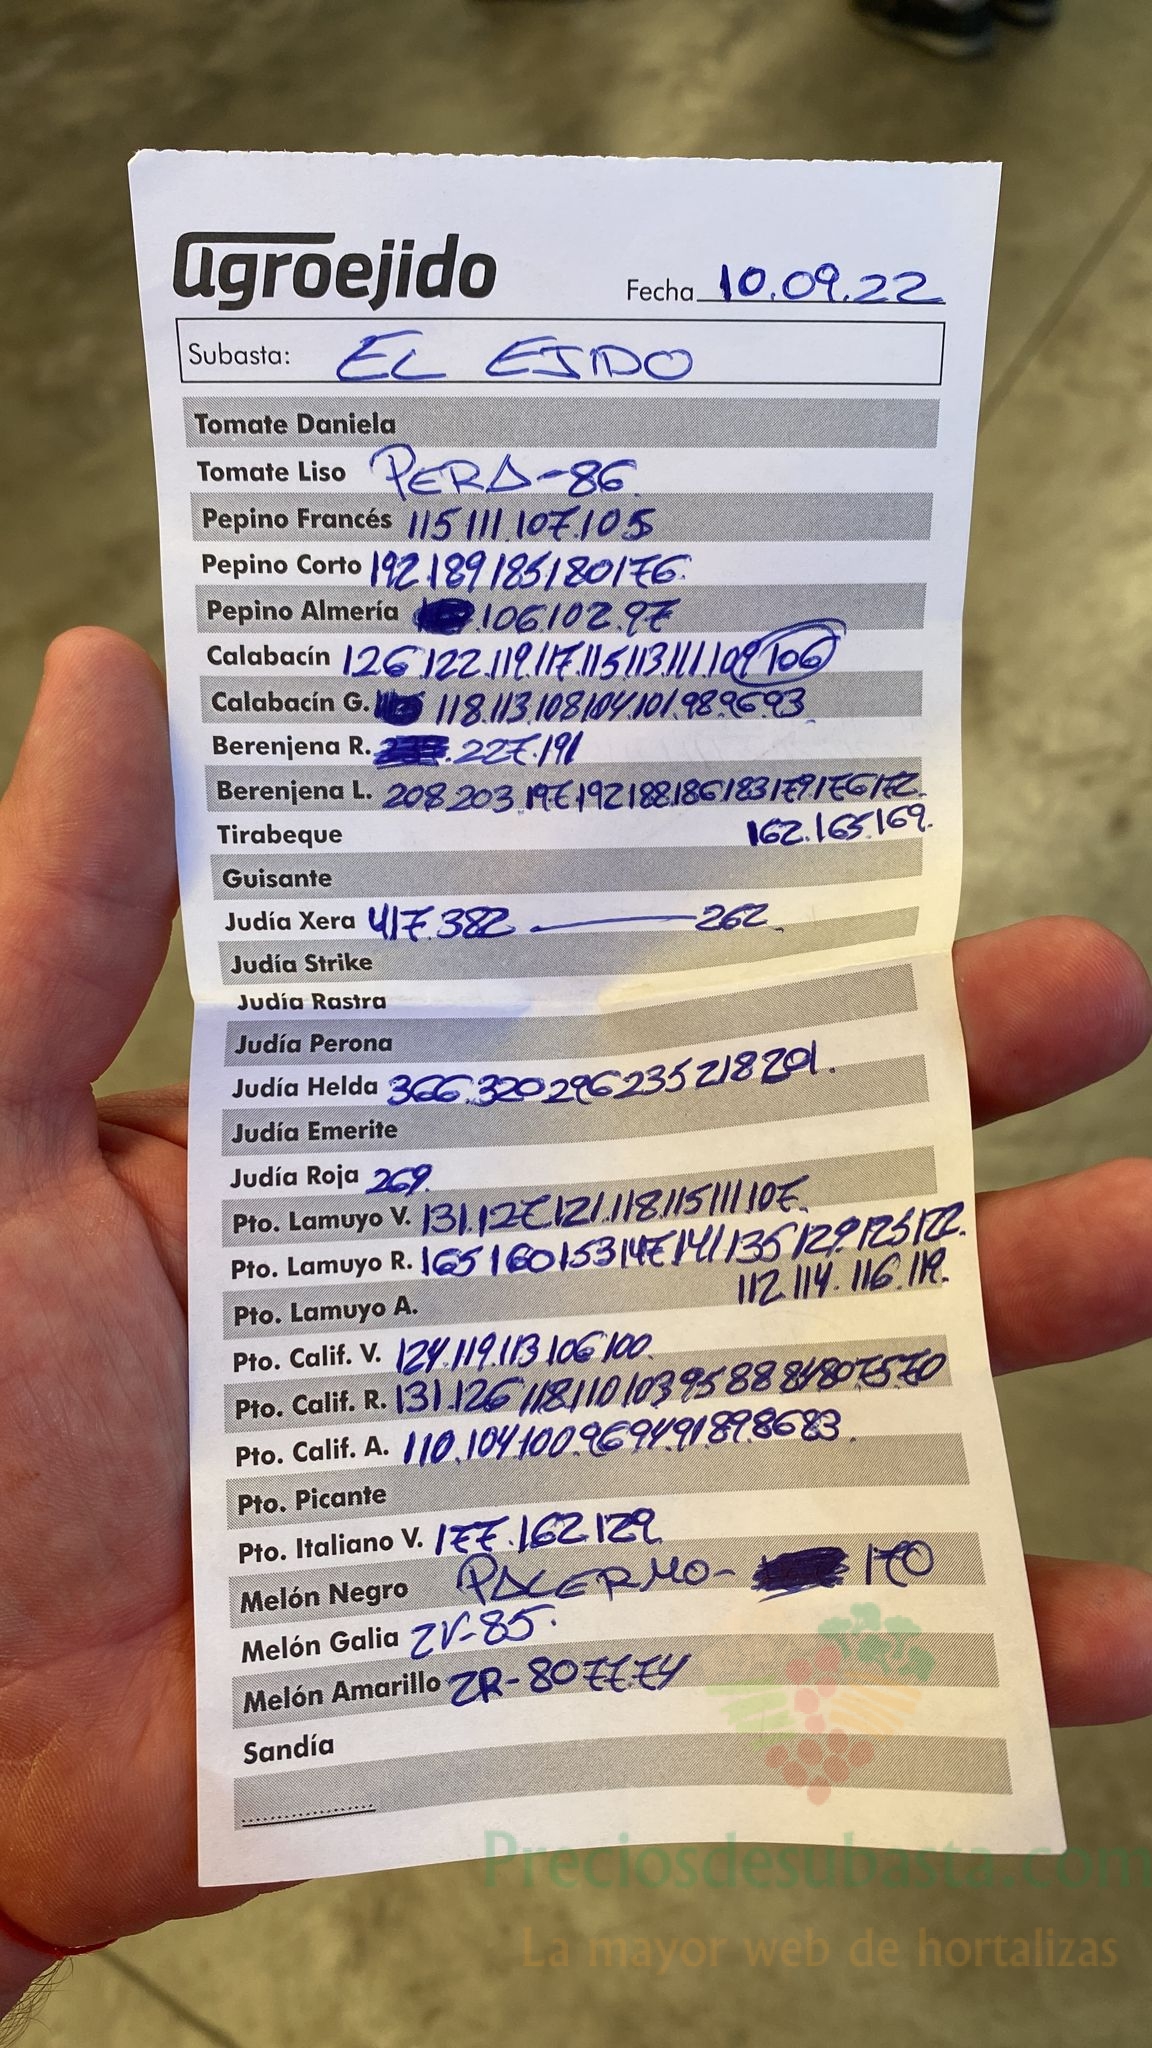 agroejido
Fecha 10.09.22
Subasta: EL EJIDO
Tomate Daniela
Tomate Liso PERA-86.
Pepino Francés 115 111.107.105
Pepino Corto 192.189 185 180 176.
Pepino Almería .106.102.97
Calabacín 126.122.119.117.115 113.111.109 106
Calabacín G. 118.113.108 104.101.98.96.93
Berenjena R. .227.191
Berenjena L. 208 203.197.192 188.186 183 179 176 172.
Tirabeque 162.165.169.
Guisante
Judía Xera 417.382 — 262.
Judía Strike
Judía Rastra
Judía Perona
Judía Helda 366.320 296 235 218 201.
Judía Emerite
Judía Roja 269.
Pto. Lamuyo V. 131.127.121.118.115 111 107.
Pto. Lamuyo R. 165 160 153 147 141 135 129.125 122.
Pto. Lamuyo A. 112.114.116.119.
Pto. Calif. V. 124.119.113 106 100.
Pto. Calif. R. 131.126 118 110 103 95 88 84 80 75 70
Pto. Calif. A. 110.104.100.96 94 91 89 86 83.
Pto. Picante
Pto. Italiano V. 177.162 129.
Melón Negro PALERMO- 170
Melón Galia ZV-85.
Melón Amarillo ZR-80 77.74
Sandía
Preciosdesubasta.com
La mayor web de hortalizas